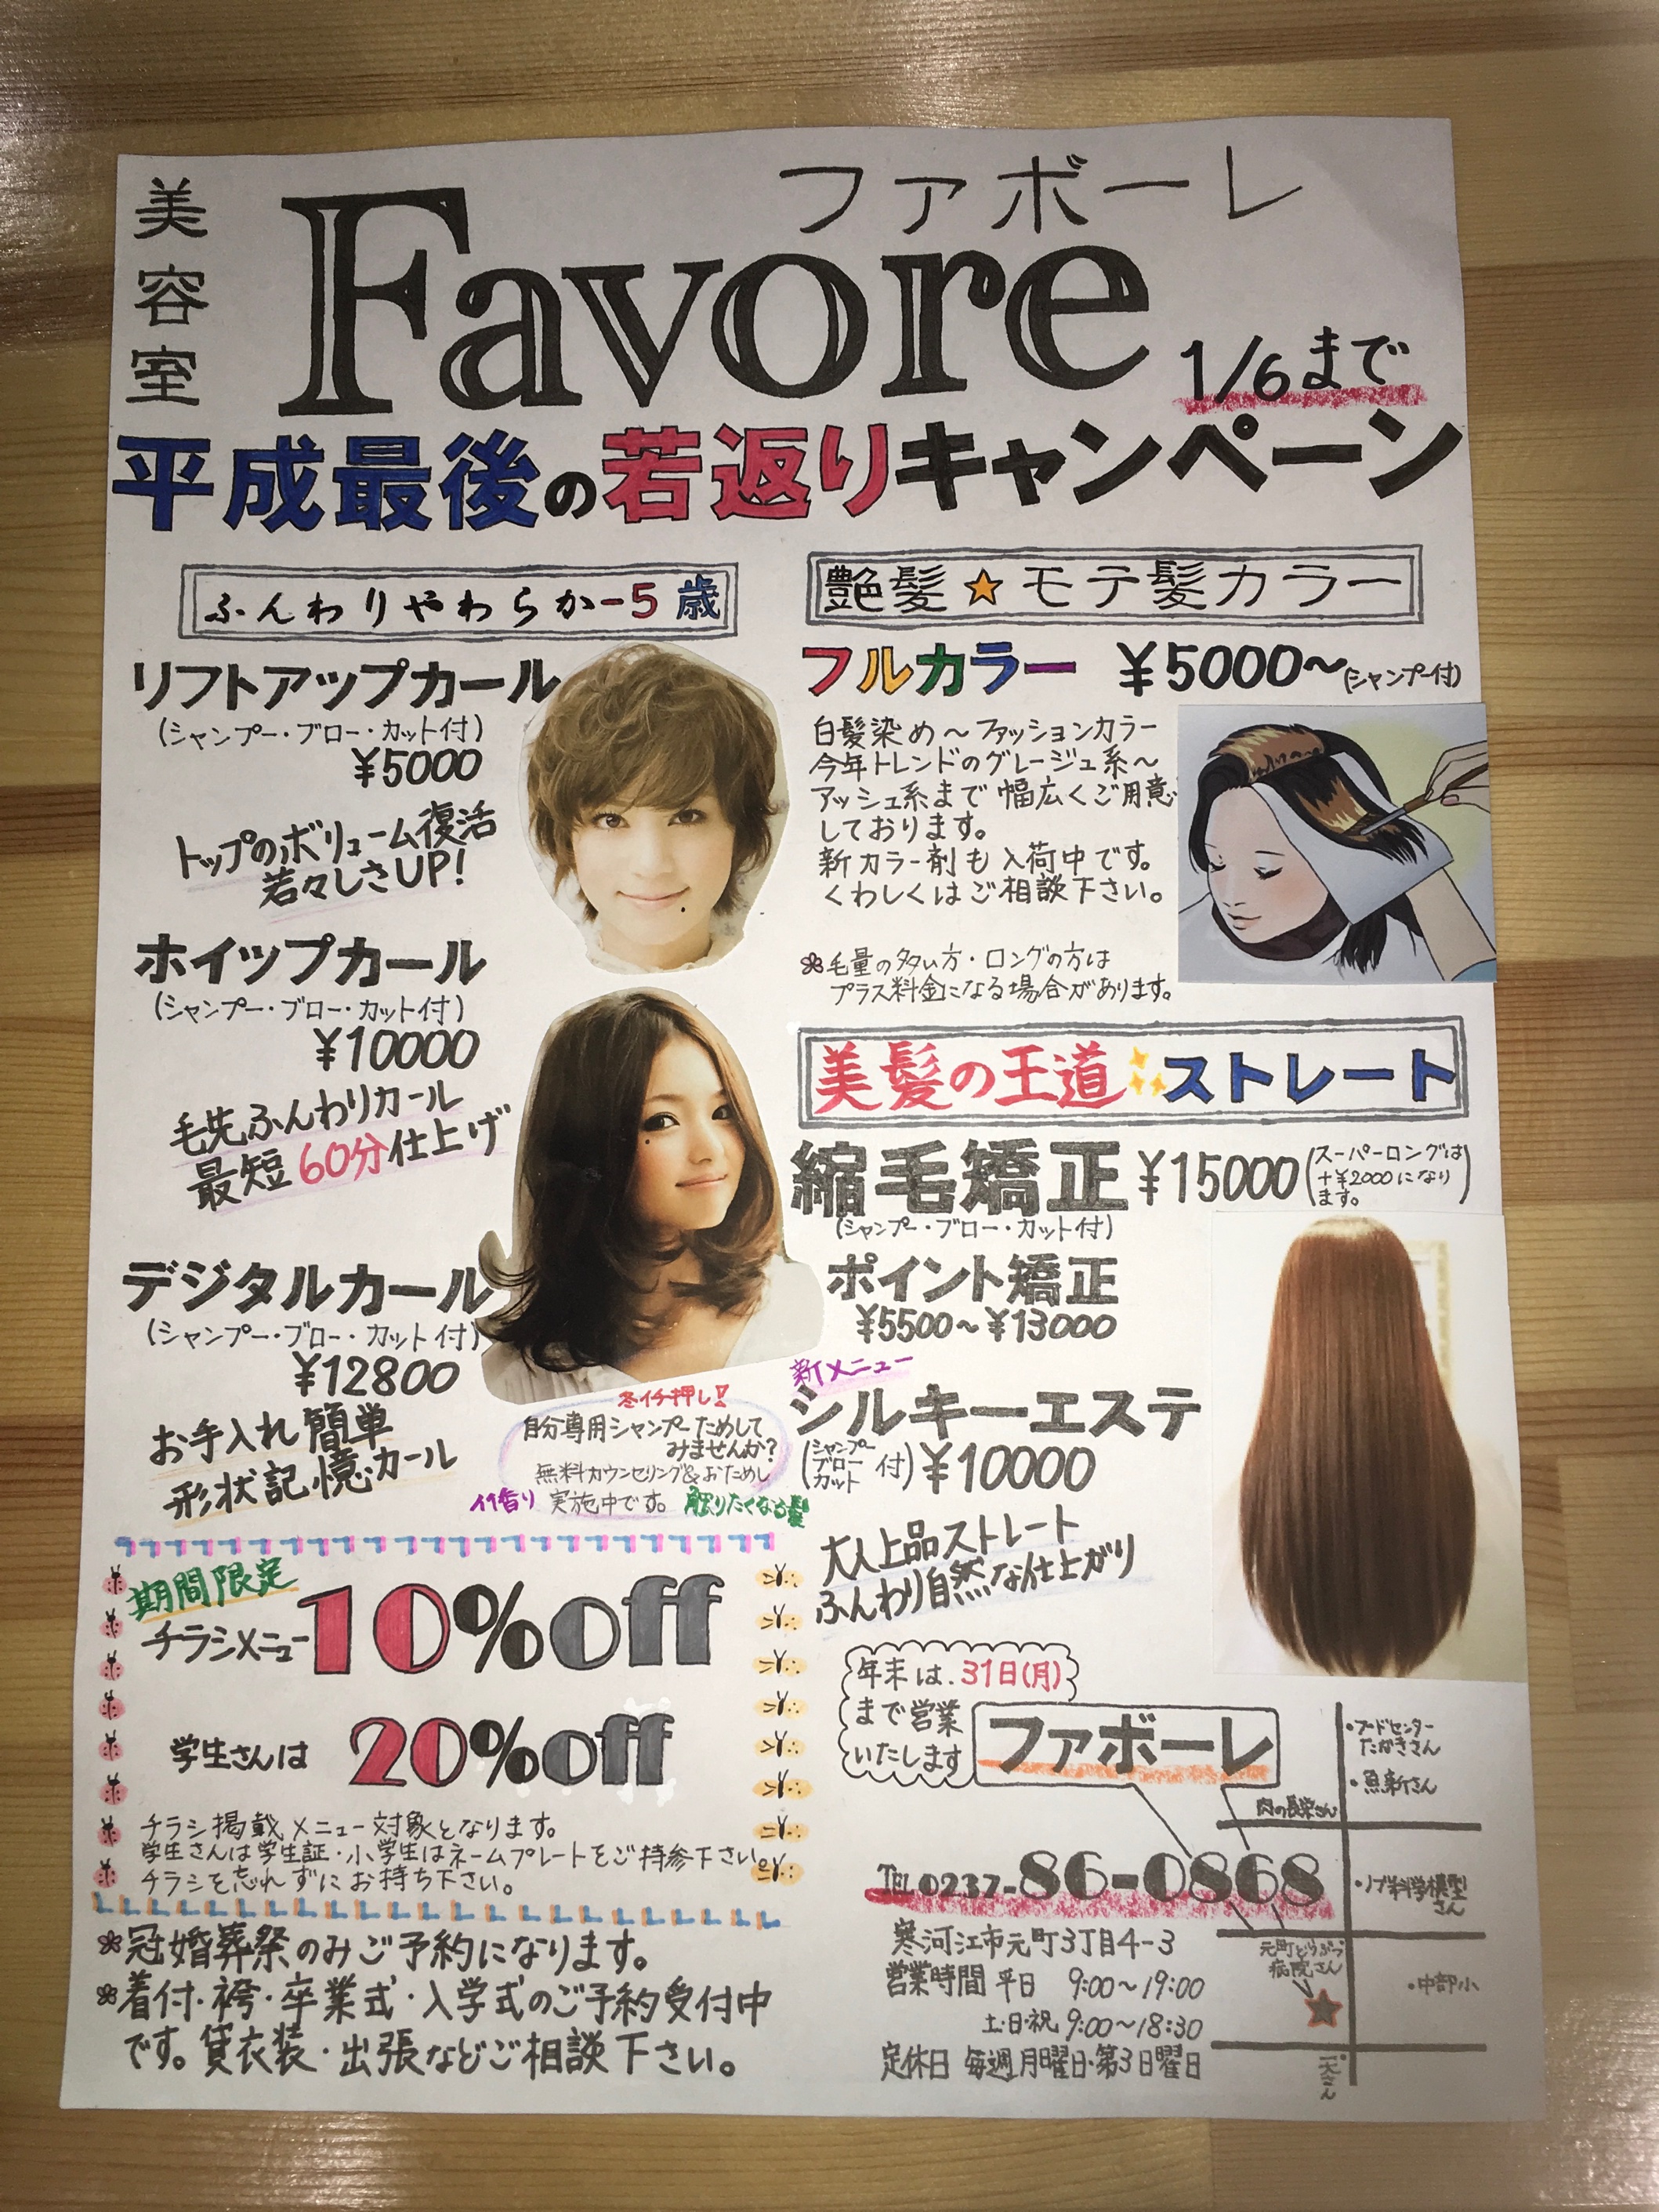 美容室
ファボーレ
Favore
1/6まで
平成最後の若返りキャンペーン
ふんわりやわらか-5歳
リフトアップカール
(シャンプー・ブロー・カット付)
¥5000
トップのボリューム復活
若々しさUP!
ホイップカール
(シャンプー・ブロー・カット付)
¥10000
毛先ふんわりカール
最短60分仕上げ
デジタルカール
(シャンプー・ブロー・カット付)
¥12800
お手入れ簡単
形状記憶カール
冬イチ押し!!
自分専用シャンプーためして
みませんか?
無料カウンセリング&おためし
実施中です。
触りたくなる髪
期間限定
チラシメニュー10%off
学生さんは 20%off
チラシ掲載メニュー対象となります。
学生さんは学生証・小学生はネームプレートをご持参下さい。
チラシを忘れずにお持ち下さい。
冠婚葬祭のみご予約になります。
着付・袴・卒業式・入学式のご予約受付中
です。貸衣装・出張などご相談下さい。
艶髪★モテ髪カラー
フルカラー ¥5000〜(シャンプー付)
白髪染め〜ファッションカラー
今年トレンドのグレージュ系〜
アッシュ系まで幅広くご用意
しております。
新カラー剤も入荷中です。
くわしくはご相談下さい。
毛量の多い方・ロングの方は
プラス料金になる場合があります。
美髪の王道 ストレート
縮毛矯正 ¥15000
(スーパーロングは
+¥2000になり
ます。)
(シャンプー・ブロー・カット付)
ポイント矯正
¥5500〜¥13000
新メニュー
シルキーエステ
(シャンプー
ブロー
カット 付) ¥10000
大人上品ストレート
ふんわり自然な仕上がり
年末は.31日(月)
まで営業
いたします
ファボーレ
・フードセンター
たかきさん
・魚新さん
肉の長栄さん
TEL 0237-86-0868
寒河江市元町3丁目4-3
営業時間 平日 9:00〜19:00
土・日・祝 9:00〜18:30
定休日 毎週月曜日・第3日曜日
元町どうぶつ
病院さん
・中部小